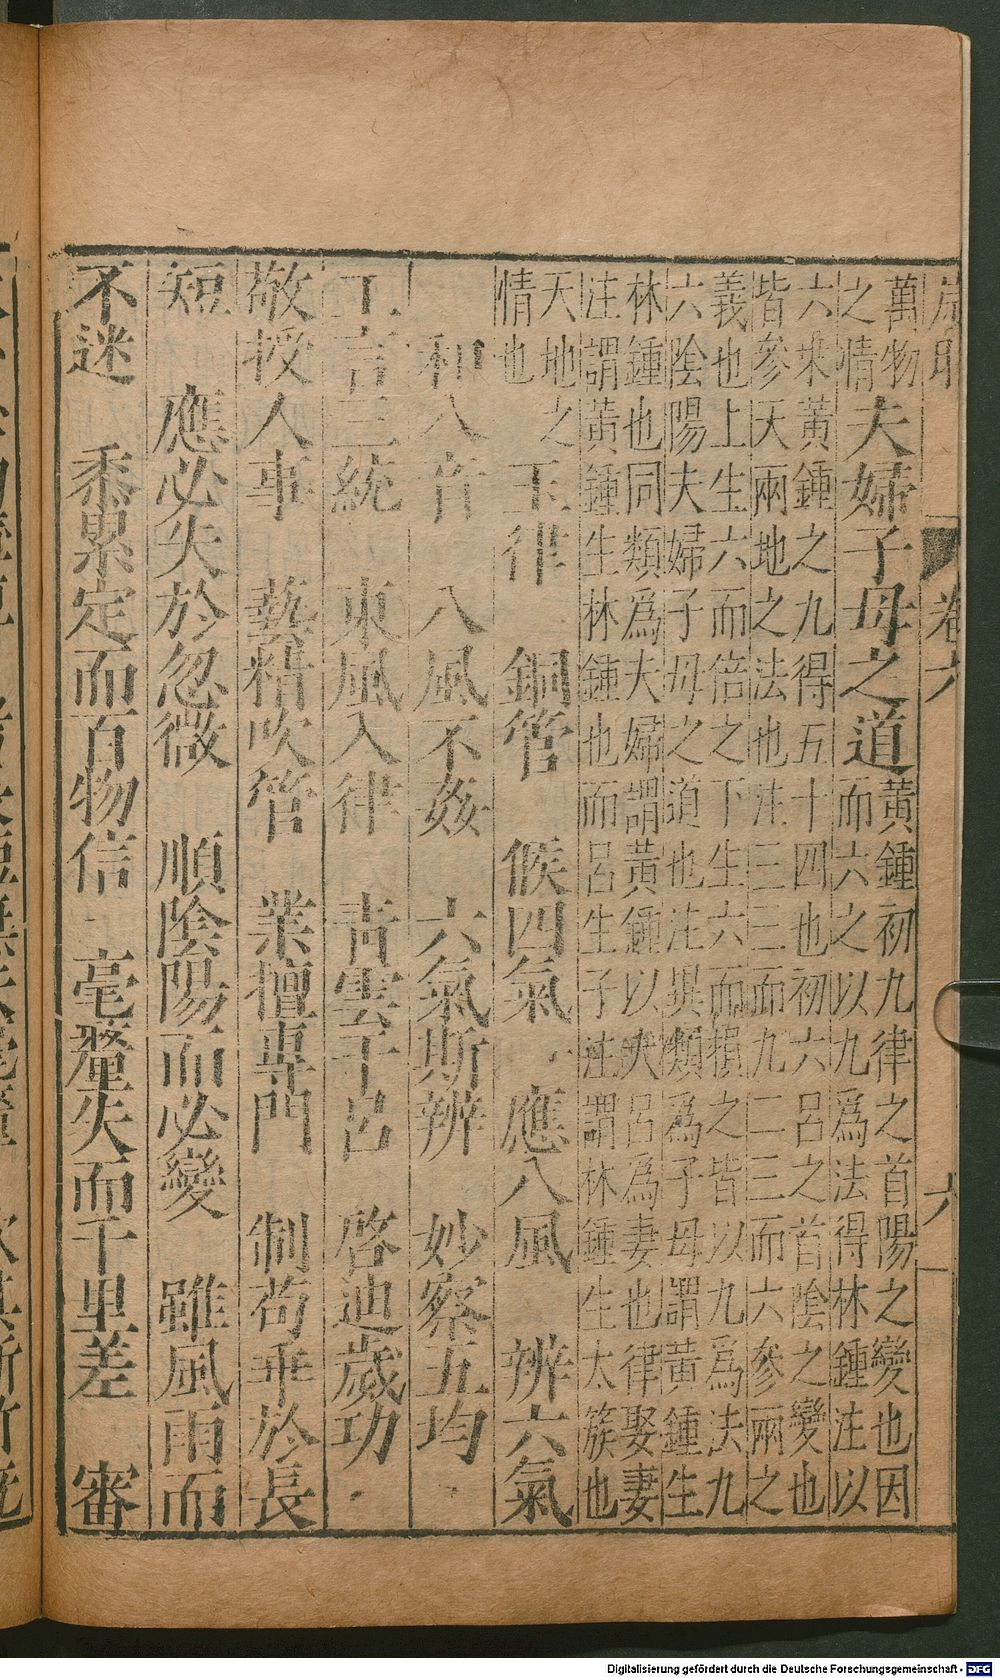 卷六 六
萬物之情 夫婦子母之道 黃鍾初九律之首陽之變也因
而六之以九爲法得林鍾注以
六來黃鍾之九得五十四也初六呂之首陰之變也
皆參天兩地之法也注三三而九二三而六參兩之
義也上生六而倍之下生六而損之皆以九爲法九
六陰陽夫婦子母之道也注異類爲子母謂黃鍾生
林鍾也同類爲夫婦謂黃鍾以大呂爲妻也律娶妻
注謂黃鍾生林鍾也而呂生子注謂林鍾生太簇也
天地之情也 玉律 銅管 候四氣 應八風 辨六氣
和八音 八風不姦 六氣斯辨 妙察五均
工言三統 東風入律 青雲干呂 啓迪歲功
敬授人事 藝精吹管 業擅專門 制苟乖於長
短 應必失於忽微 順陰陽而必變 雖風雨而
不迷 黍累定而百物信 毫釐失而千里差 審
Digitalisierung gefördert durch die Deutsche Forschungsgemeinschaft - DFG